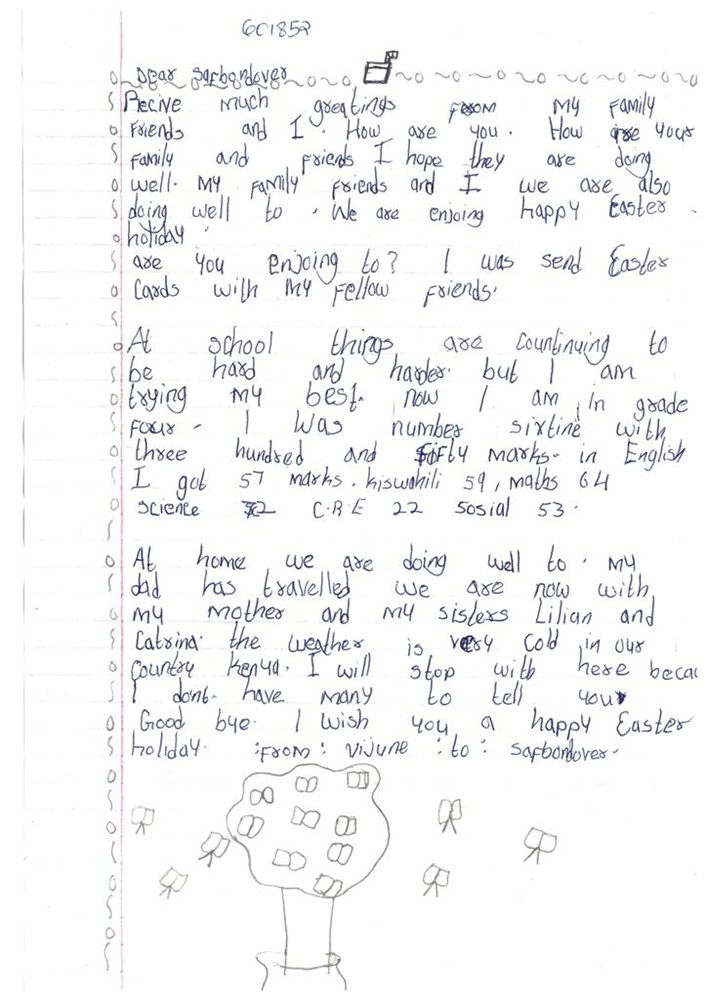 GC1852
Dear Safbondover
Recive much greatings from my family
Friends and I. How are you. How are your
family and friends I hope they are doing
well. My family friends and I we are also
doing well to. We are enjoing happy Easter
holiday.
are you enjoing to? I was send Easter
Cards with my fellow friends.
At school things are countinuing to
be hard and harder. but I am
trying my best. now I am in grade
four. I was number sixtine with
three hundred and fifty marks. in English
I got 57 marks. kiswahili 59, maths 64
science 72 C.R.E 22 sosial 53.
At home we are doing well to. my
dad has travelled we are now with
my mother and my sisters Lilian and
Catrina. the weather is very cold in our
country Kenya. I will stop with here becau
I dont have many to tell you
Good bye. I wish you a happy Easter
holiday. :from: vivune :to: safbondover.